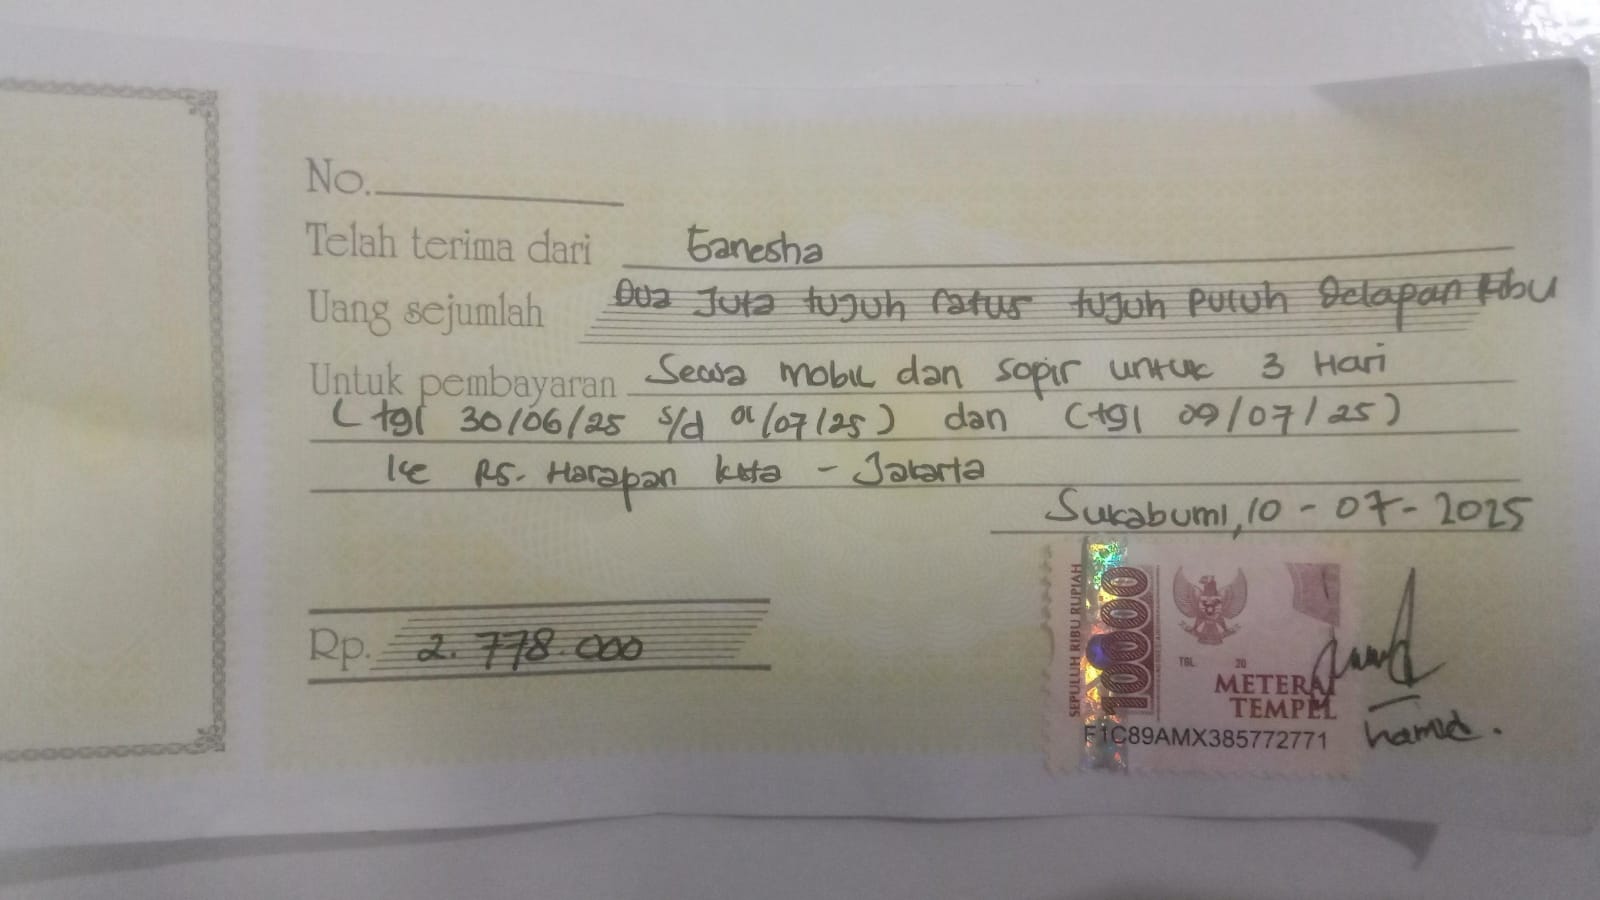 No.
Telah terima dari Ganesha
Uang sejumlah Dua Juta tujuh ratus tujuh puluh Delapan Ribu
Untuk pembayaran Sewa mobil dan sopir untuk 3 Hari
(tgl 30/06/25 s/d 01/07/25) dan (tgl 09/07/25)
ke RS. Harapan kita - Jakarta
Sukabumi, 10 - 07 - 2025
Rp. 2.778.000
SEPULUH RIBU RUPIAH
10000
TGL 20
METERAI
TEMPEL
F1C89AMX385772771
hamid.